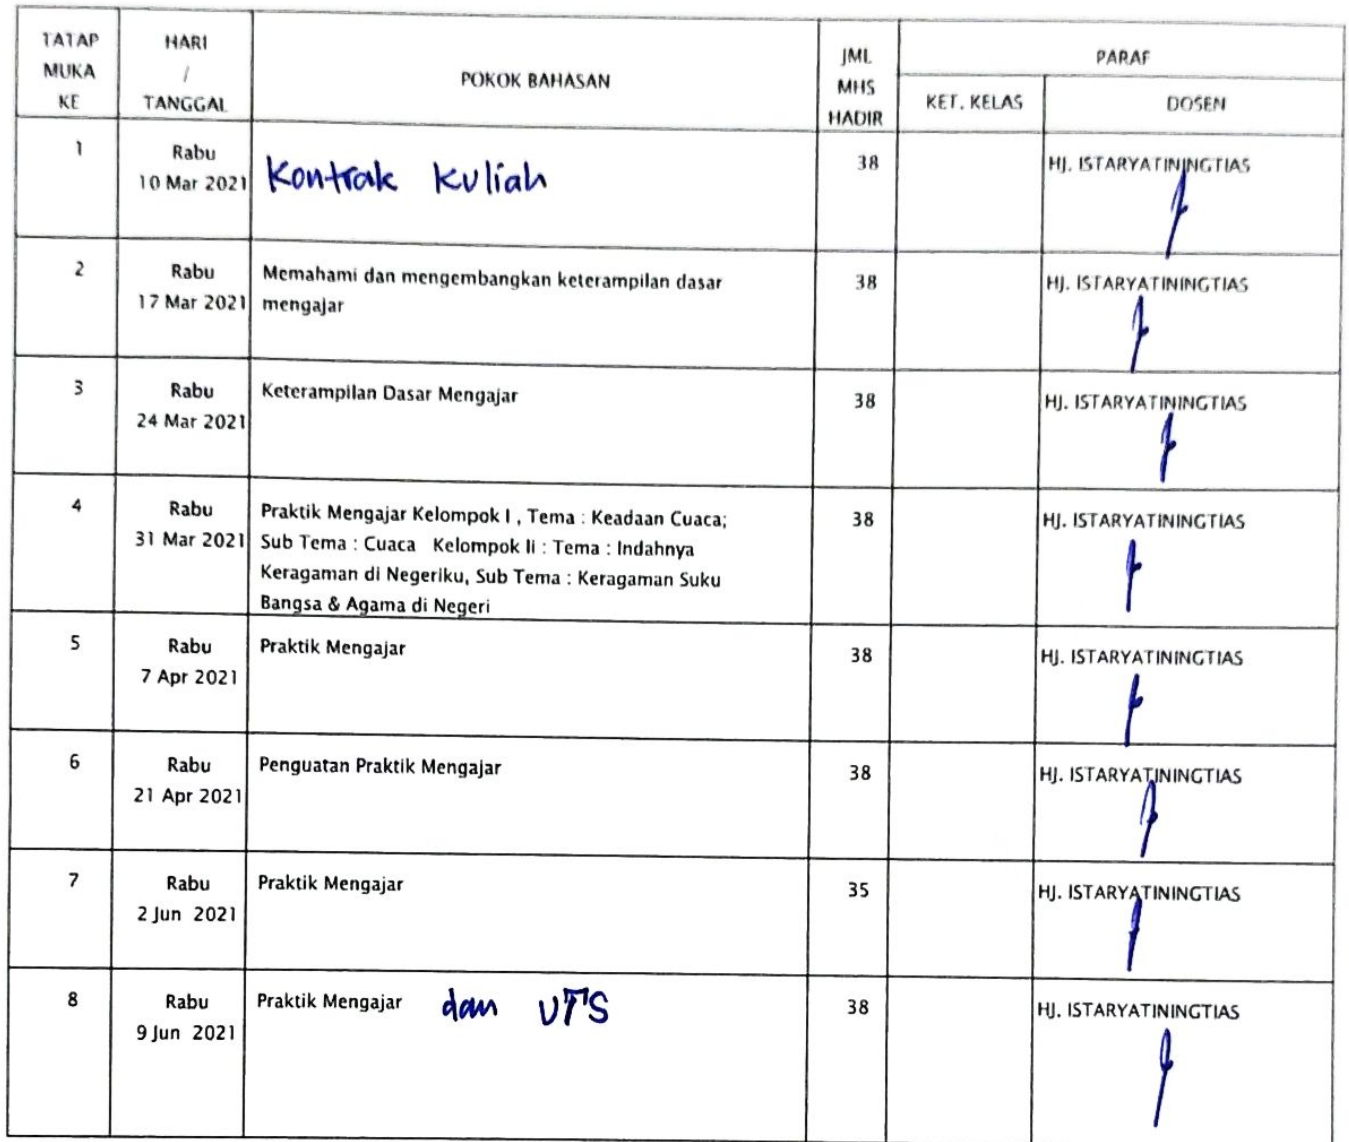 TATAP MUKA KE
HARI / TANGGAL
POKOK BAHASAN
JML MHS HADIR
PARAF
KET. KELAS
DOSEN
1
Rabu
10 Mar 2021
Kontrak Kuliah
38
HJ. ISTARYATININGTIAS
2
Rabu
17 Mar 2021
Memahami dan mengembangkan keterampilan dasar
mengajar
38
HJ. ISTARYATININGTIAS
3
Rabu
24 Mar 2021
Keterampilan Dasar Mengajar
38
HJ. ISTARYATININGTIAS
4
Rabu
31 Mar 2021
Praktik Mengajar Kelompok I , Tema : Keadaan Cuaca;
Sub Tema : Cuaca Kelompok Ii : Tema : Indahnya
Keragaman di Negeriku, Sub Tema : Keragaman Suku
Bangsa & Agama di Negeri
38
HJ. ISTARYATININGTIAS
5
Rabu
7 Apr 2021
Praktik Mengajar
38
HJ. ISTARYATININGTIAS
6
Rabu
21 Apr 2021
Penguatan Praktik Mengajar
38
HJ. ISTARYATININGTIAS
7
Rabu
2 Jun 2021
Praktik Mengajar
35
HJ. ISTARYATININGTIAS
8
Rabu
9 Jun 2021
Praktik Mengajar dan UTS
38
HJ. ISTARYATININGTIAS